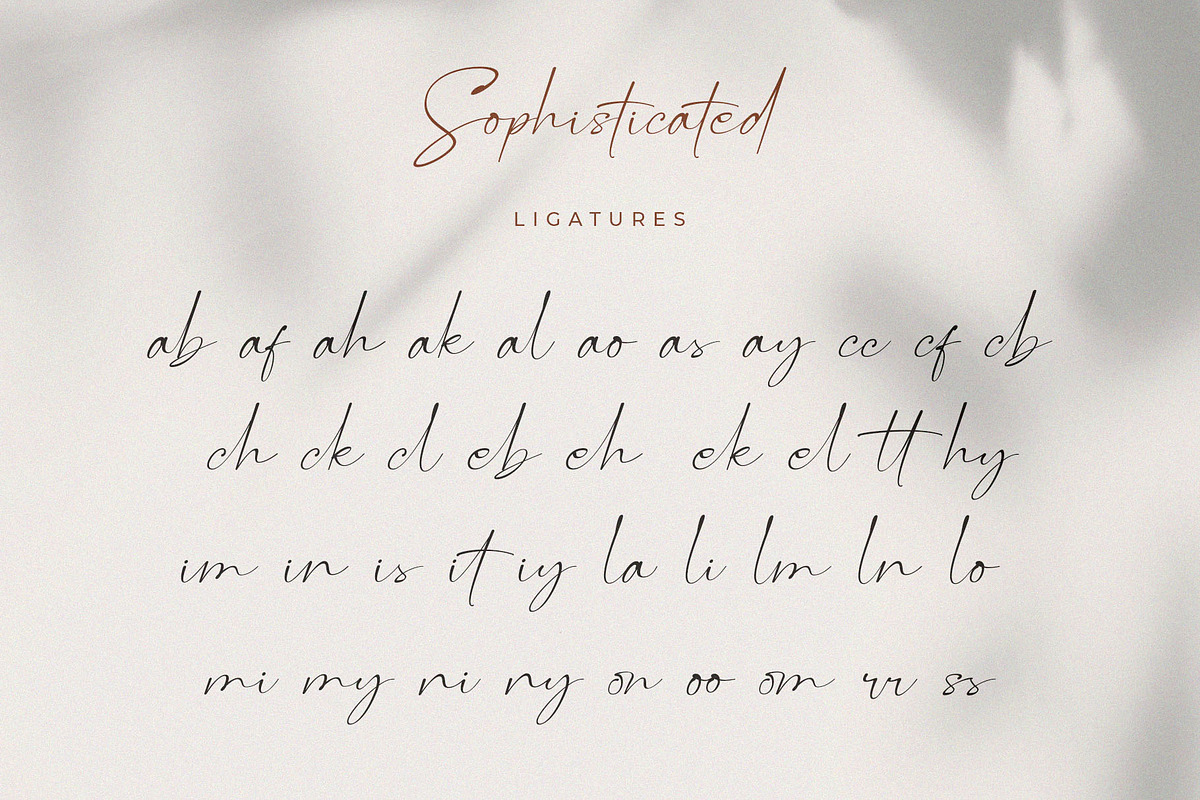 Sophisticated
LIGATURES
ab af ah ak al ao as ay cc cf cb
ch ck cl eb eh ek el tt hy
im in is it iy la li lm ln lo
mi my ni ny on oo om rr ss